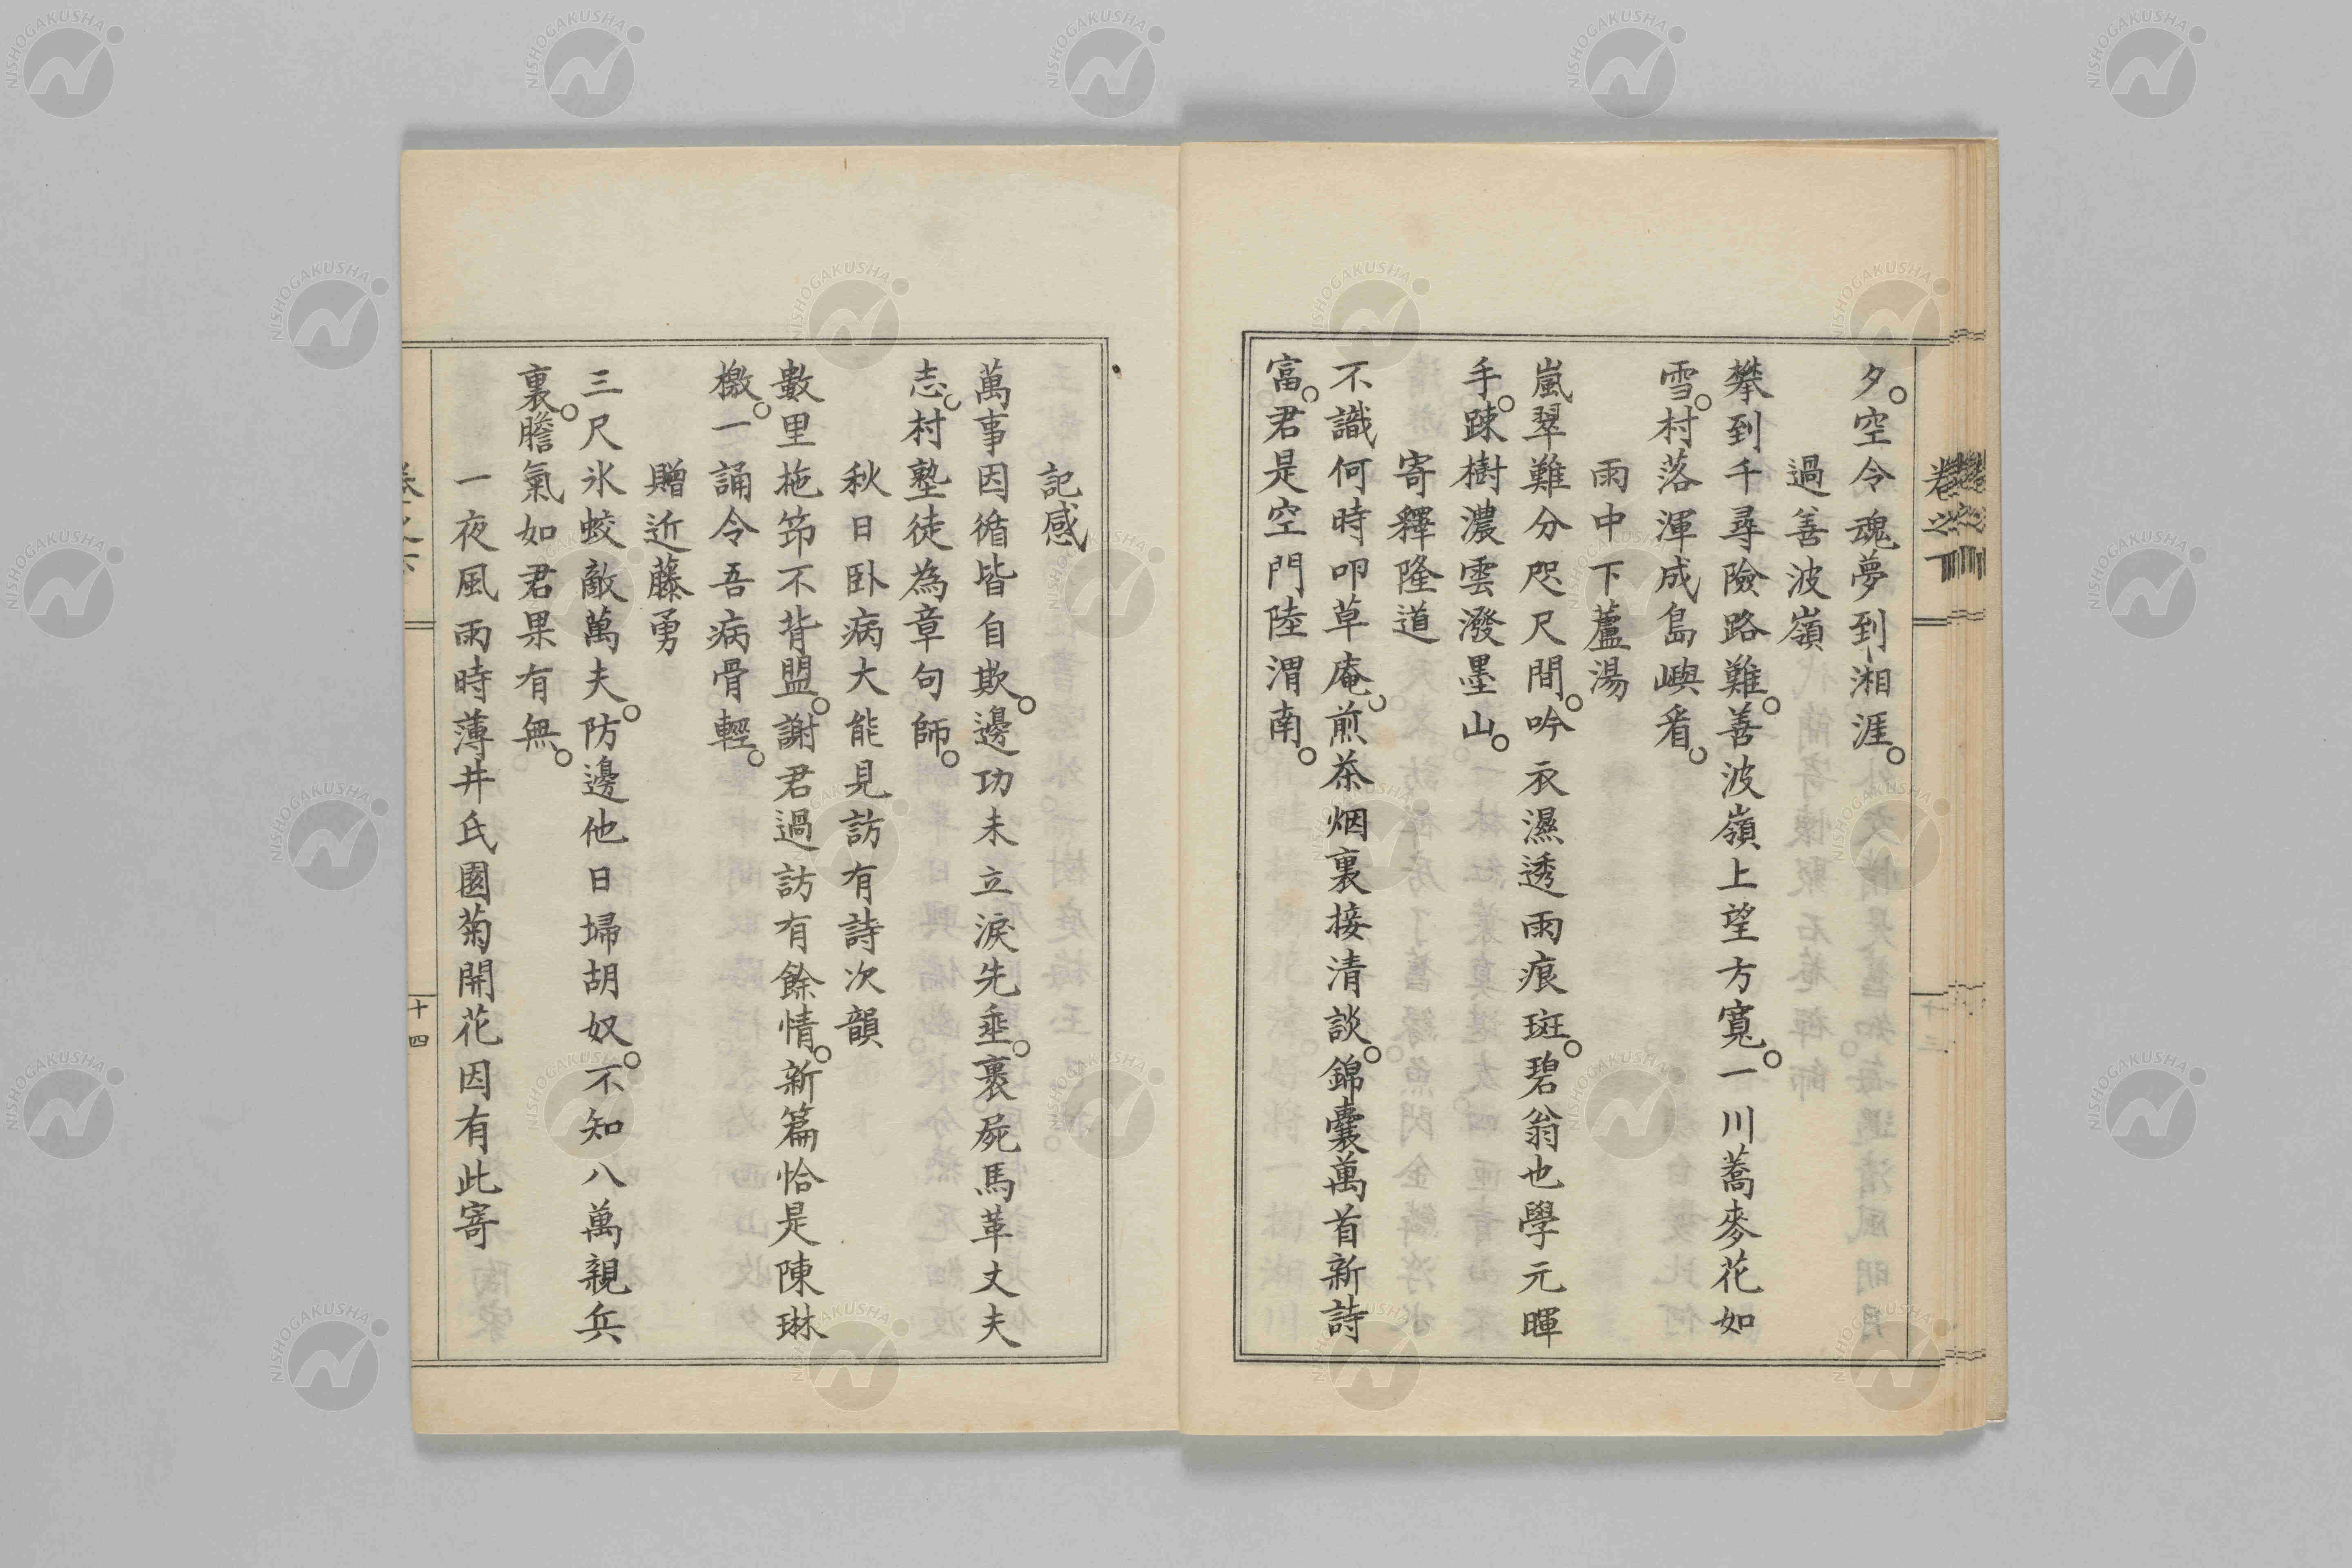 夕。空令魂夢到湘涯。
過善波嶺
攀到千尋險路難。善波嶺上望方寬。一川蕎麥花如
雪。村落渾成島嶼看。
雨中下蘆湯
嵐翠難分咫尺間。吟衣濕透雨痕斑。碧翁也學元暉
手。踈樹濃雲潑墨山。
寄釋隆道
不識何時叩草庵。煎茶烟裏接清談。錦囊萬首新詩
富。君是空門陸渭南。
記感
萬事因循皆自欺。邊功未立淚先垂。裹屍馬革丈夫
志。村塾徒為章句師。
秋日臥病大能見訪有詩次韻
數里拖筇不背盟。謝君過訪有餘情。新篇恰是陳琳
檄。一誦令吾病骨輕。
贈近藤勇
三尺氷蛟敵萬夫。防邊他日埽胡奴。不知八萬親兵
裏。膽氣如君果有無。
一夜風雨時薄井氏園菊開花因有此寄
十四
NISHOGAKUSHA